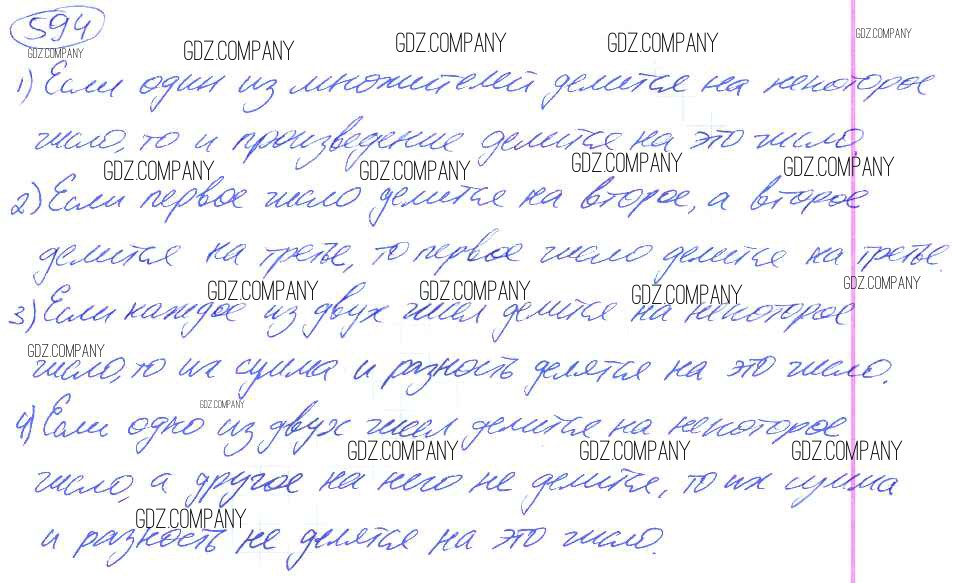 594
GDZ.COMPANY
GDZ.COMPANY GDZ.COMPANY GDZ.COMPANY GDZ.COMPANY
1) Если один из множителей делится на некоторое
число, то и произведение делится на это число.
GDZ.COMPANY GDZ.COMPANY GDZ.COMPANY GDZ.COMPANY
2) Если первое число делится на второе, а второе
делится на третье, то первое число делится на третье.
GDZ.COMPANY GDZ.COMPANY GDZ.COMPANY GDZ.COMPANY
3) Если каждое из двух чисел делится на некоторое
GDZ.COMPANY
число, то их сумма и разность делятся на это число.
GDZ.COMPANY
4) Если одно из двух чисел делится на некоторое
GDZ.COMPANY GDZ.COMPANY GDZ.COMPANY
число, а другое на него не делится, то их сумма
GDZ.COMPANY
и разность не делятся на это число.